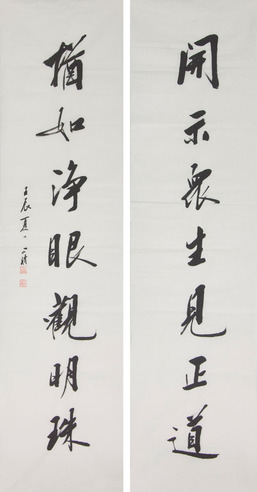 開示眾生見正道
猶如淨眼觀明珠
壬辰夏